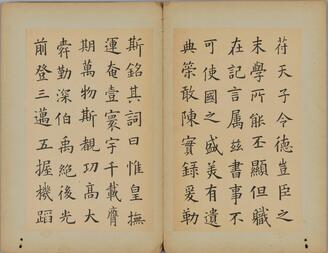 苻天子令德豈臣之
末學所能丕顯但職
在記言属兹書事不
可使國之盛美有遺
典策敢陳實録爰勒
斯銘其詞曰惟皇撫
運奄壹寰宇千載膺
期萬物斯覩功高大
舜勤深伯禹絶後光
前登三邁五握機蹈